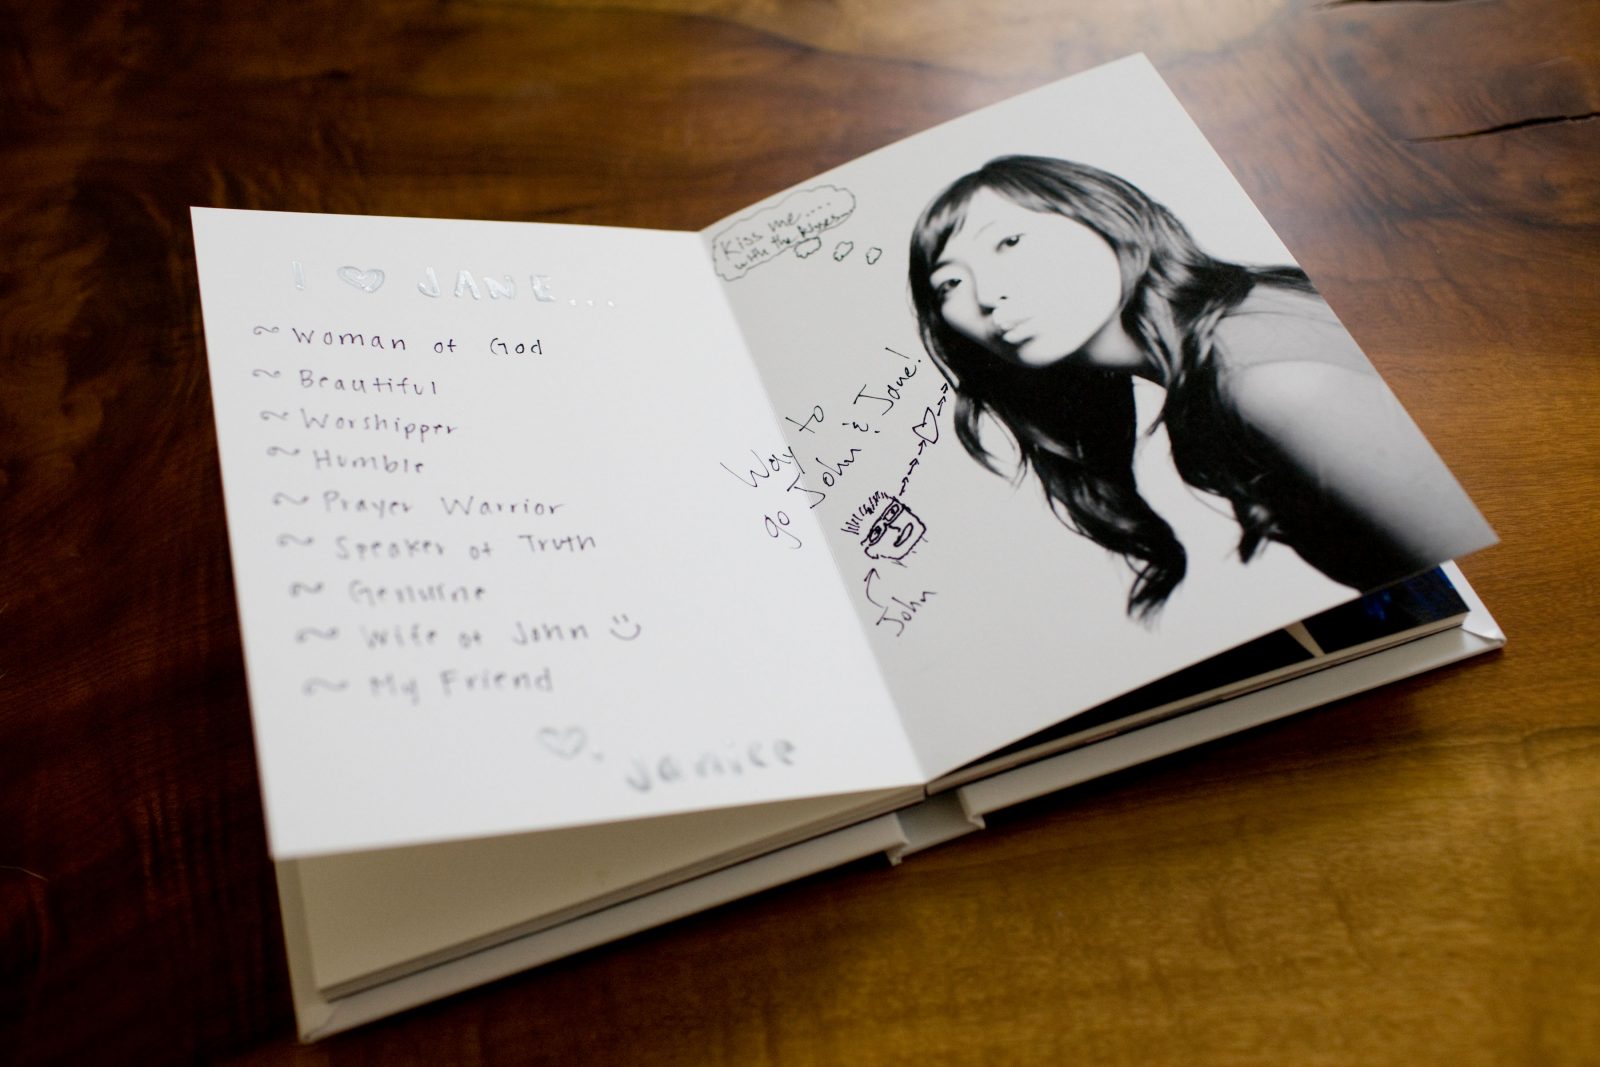 I ♡ JANE...
~ Woman of God
~ Beautiful
~ Worshipper
~ Humble
~ Prayer Warrior
~ Speaker of Truth
~ Genuine
~ Wife of John :)
~ My Friend
♡. Janice
Kiss me....
with the
Way to
go John & Jane!
John